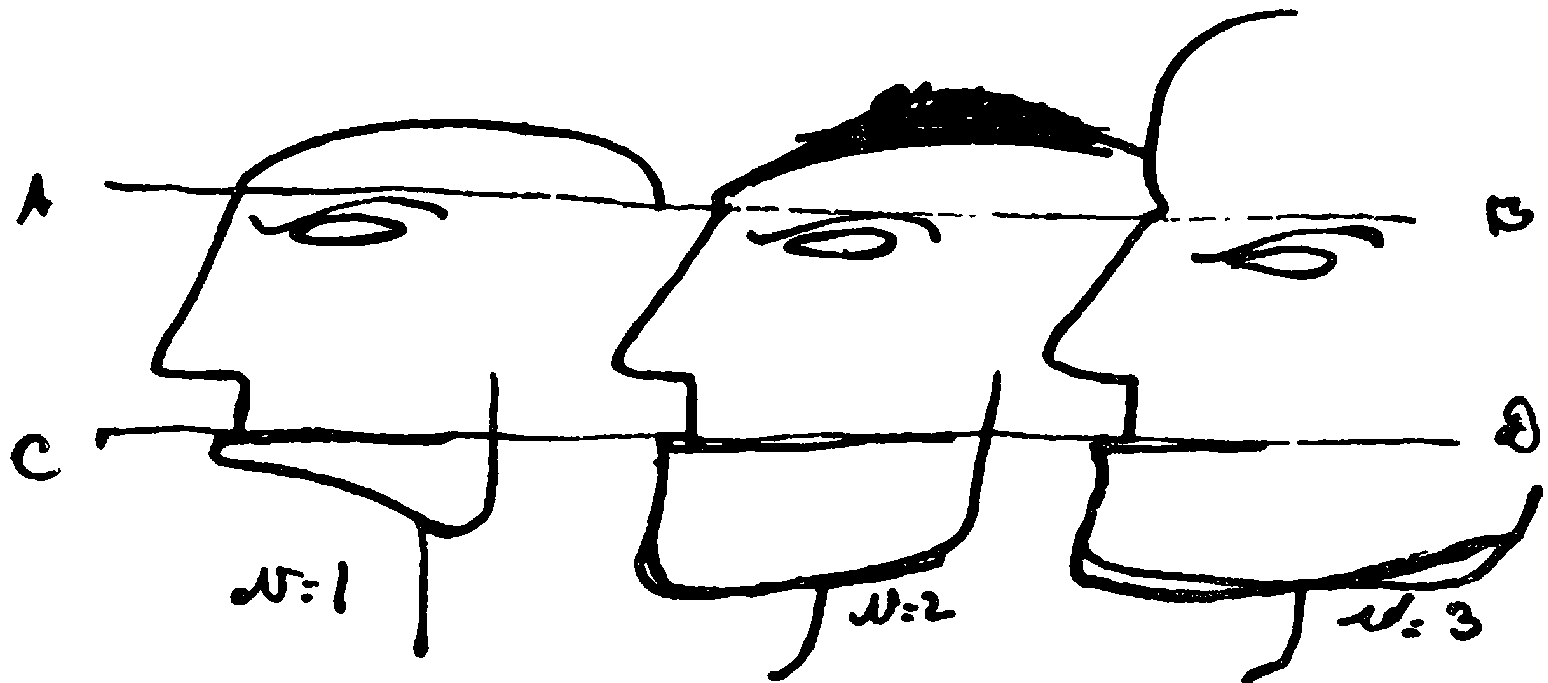 A B
C D
N=1 N=2 N=3